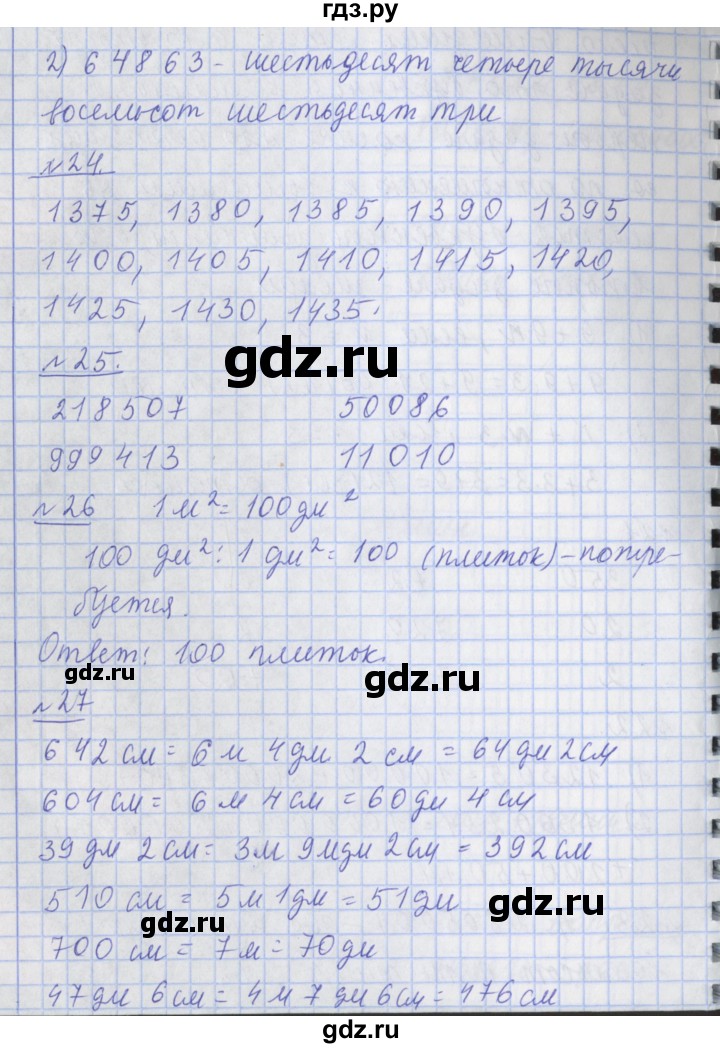 гдз.ру
2) 64863 - шестьдесят четыре тысячи
восемьсот шестьдесят три
№24.
1375, 1380, 1385, 1390, 1395,
1400, 1405, 1410, 1415, 1420,
1425, 1430, 1435.
gdz.ru
№25.
218507 50086
gdz.ru
999413 11010
№26 1 м² = 100 дм²
100 дм² : 1 дм² = 100 (плиток) - потре-
gdz.ru
буется.
Ответ: 100 плиток.
gdz.ru
№27
642 см = 6 м 4 дм 2 см = 64 дм 2 см
604 см = 6 м 4 см = 60 дм 4 см
39 дм 2 см = 3 м 9 м дм 2 см = 392 см
510 см = 5 м 1 дм = 51 дм
gdz.ru
gdz.ru
700 см = 7 м = 70 дм
47 дм 6 см = 4 м 7 дм 6 см = 476 см
gdz.ru